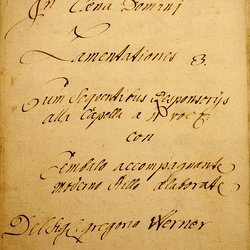 In Cena Domini
Lamentationes 3.
Cum Sequentibus Responsorijs
alla Capella a 4 voci
con
Cembalo accompagnante
moderno stillo elaborate
Del Sig. Gregorio Werner